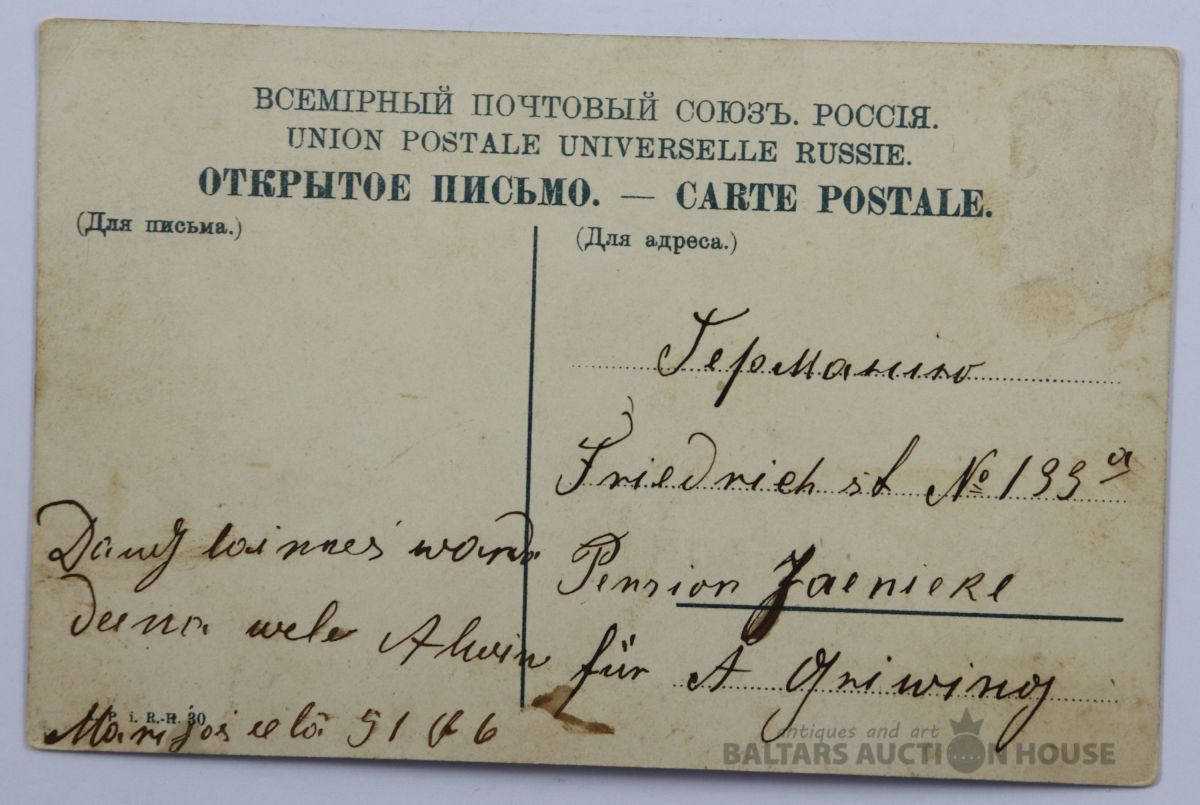 ВСЕМІРНЫЙ ПОЧТОВЫЙ СОЮЗЪ. РОССІЯ.
UNION POSTALE UNIVERSELLE RUSSIE.
ОТКРЫТОЕ ПИСЬМО. — CARTE POSTALE.
(Для письма.)
(Для адреса.)
Германію
Friedrich st № 133 a
Pension Jaenicke
für A Griwing
Daudz laimes
deena wele Alwin
Marijas eelā 51
P. i. R.-H. 30
antiques and art
BALTARS AUCTION HOUSE